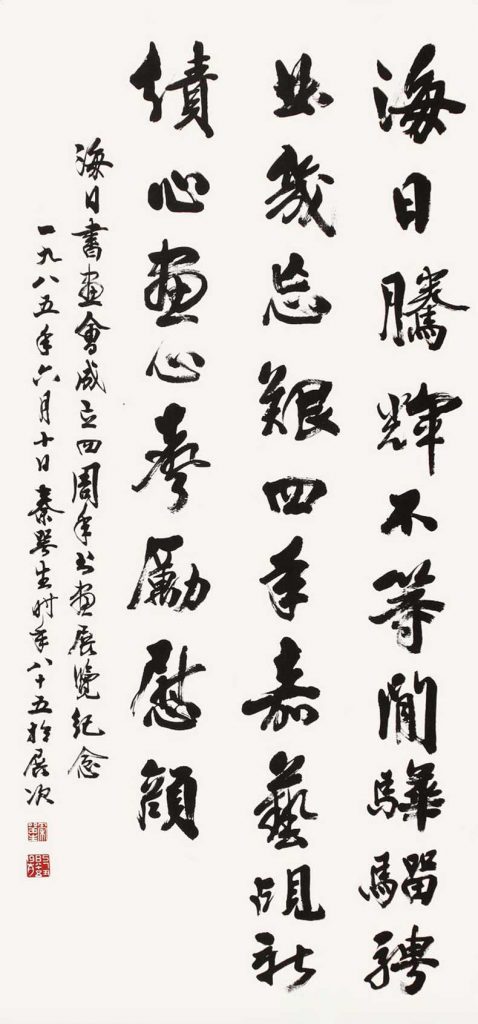 海日騰輝不等閒驊騮騁
业幾忘艱四年嘉藝覘新
績心畫心聲勵慰顏
海日書畫會成立四周年书畫展覽紀念
一九八五年六月十日秦咢生时年八十五於展次